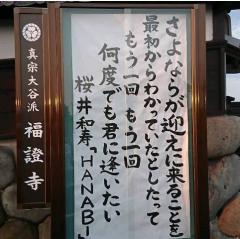 さよならが迎えに来ることを
最初からわかっていたとしたって
もう一回 もう一回
何度でも君に逢いたい
桜井和寿「HANABI」
真宗大谷派
福證寺